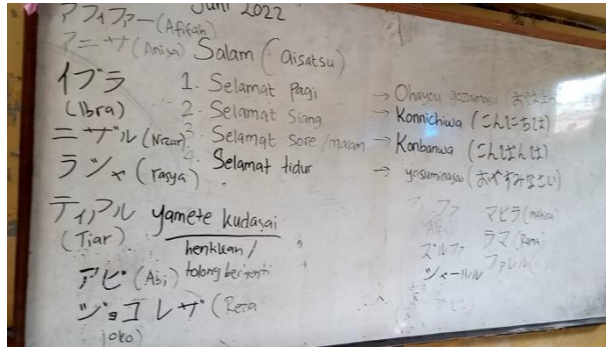 Juni 2022
アフィファー (Afifah)
アニサ (Anisa)
Salam (aisatsu)
イブラ
(Ibra)
ニザル (Nizar)
ラシャ (rasya)
ティアル
(Tiar)
アビ (Abi)
ジョコ レザ (Reza
joko)
1. Selamat pagi → Ohayou gozaimasu
2. Selamat siang → Konnichiwa (こんにちは)
3 Selamat sore/malam → Konbanwa (こんばんは)
4. Selamat tidur → yasuminasai (おやすみなさい)
yamete kudasai
hentikan /
tolong berhenti
マヒラ (mahira)
ズルファ ラマ (Rama)
ファレル